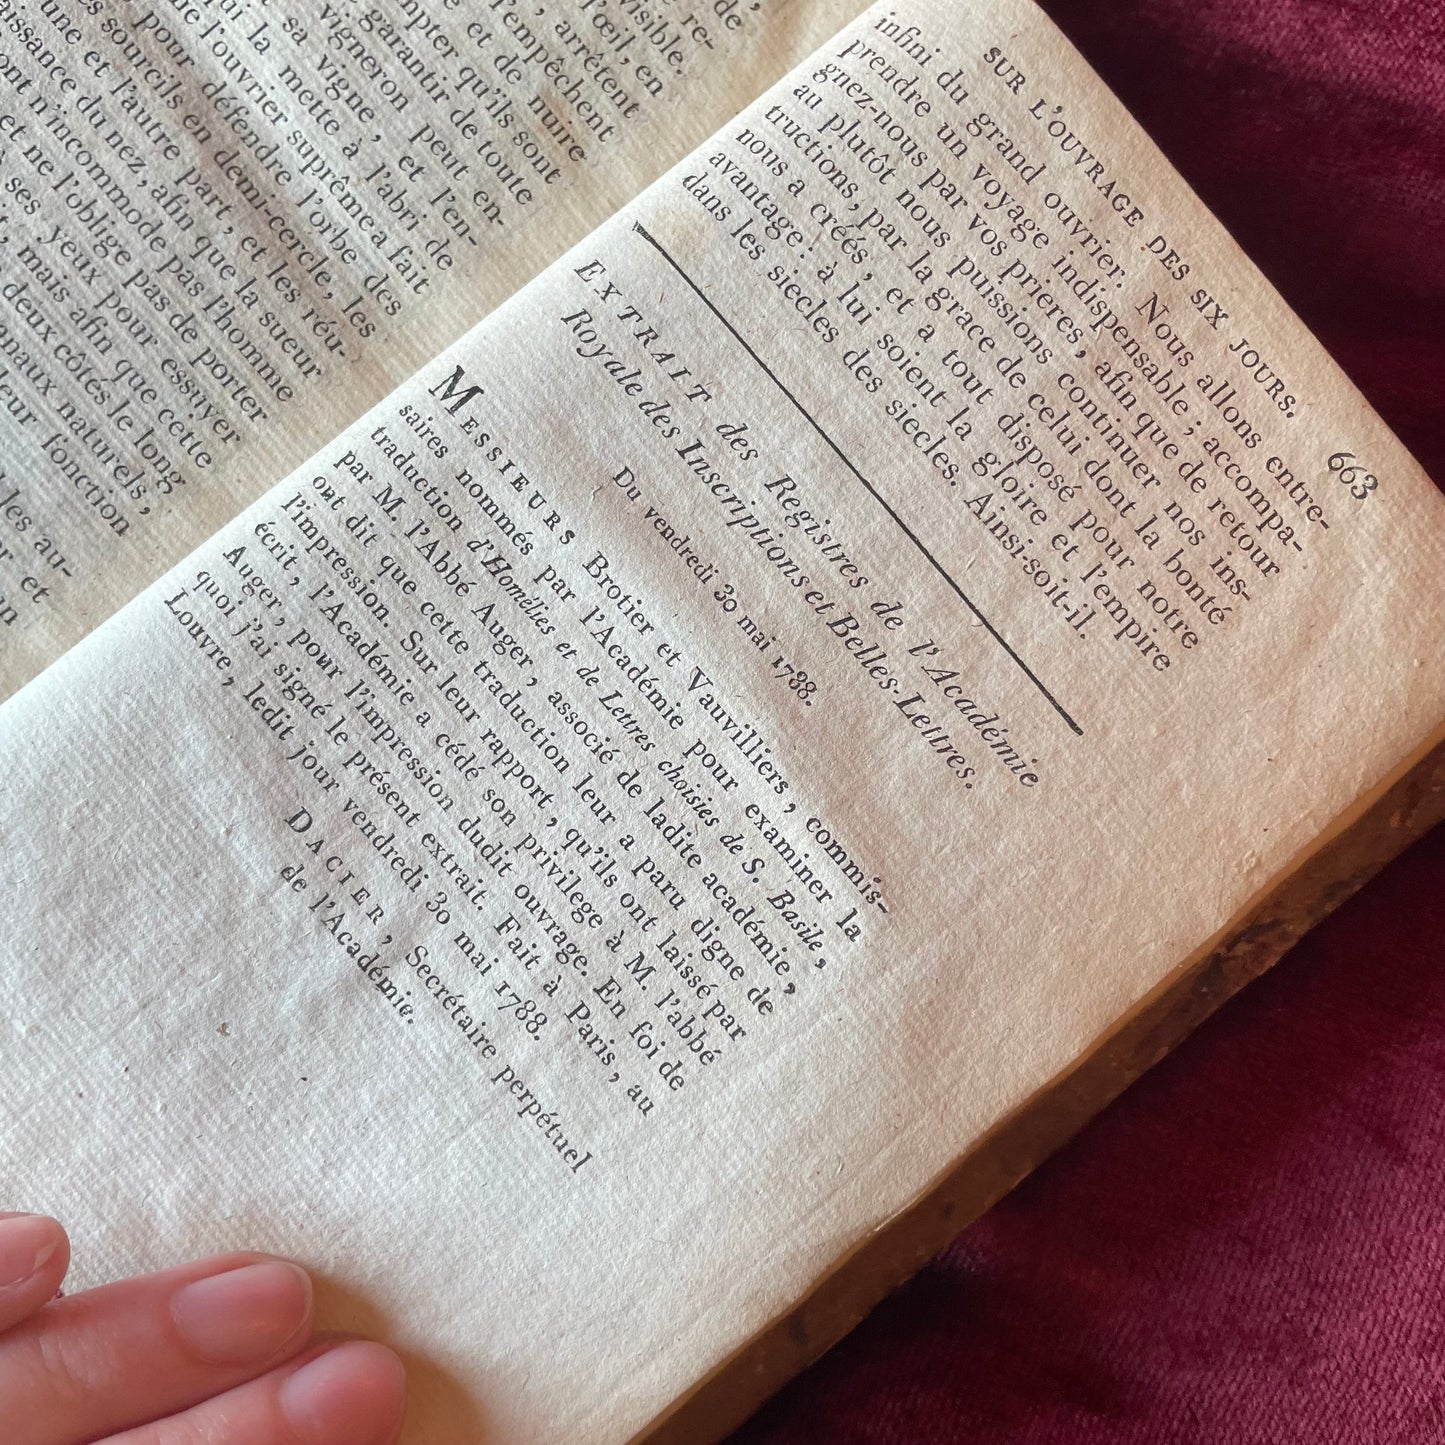 de,
re-
visible.
l'œil, en
arrêtent
l'empêchent
et de nuire
qu'ils sont
garantir de toute
vigneron peut en-
sa vigne, et l'en-
la mette à l'abri de
l'ouvrier suprême a fait
pour défendre l'orbe des
sourcils en demi-cercle, les
une et l'autre part, et les réu-
du nez, afin que la sueur
n'incommode pas l'homme
et ne l'oblige pas de porter
ses yeux pour essuyer
mais afin que cette
deux côtés le long
naturels,
leur fonction
les au-
et
SUR L'OUVRAGE DES SIX JOURS. 663
infini du grand ouvrier. Nous allons entre-
prendre un voyage indispensable ; accompa-
gnez-nous par vos prieres, afin que de retour
au plutôt nous puissions continuer nos ins-
tructions, par la grace de celui dont la bonté
nous a créés, et a tout disposé pour notre
avantage : à lui soient la gloire et l'empire
dans les siecles des siecles. Ainsi-soit-il.
EXTRAIT des Registres de l'Académie
Royale des Inscriptions et Belles-Lettres.
Du vendredi 30 mai 1788.
MESSIEURS Brotier et Vauvilliers, commis-
saires nommés par l'Académie pour examiner la
traduction d'Homélies et de Lettres choisies de S. Basile,
par M. l'Abbé Auger, associé de ladite académie,
ont dit que cette traduction leur a paru digne de
l'impression. Sur leur rapport, qu'ils ont laissé par
écrit, l'Académie a cédé son privilege à M. l'abbé
Auger, pour l'impression dudit ouvrage. En foi de
quoi j'ai signé le présent extrait. Fait à Paris, au
Louvre, ledit jour vendredi 30 mai 1788.
DACIER, Secrétaire perpétuel
de l'Académie.